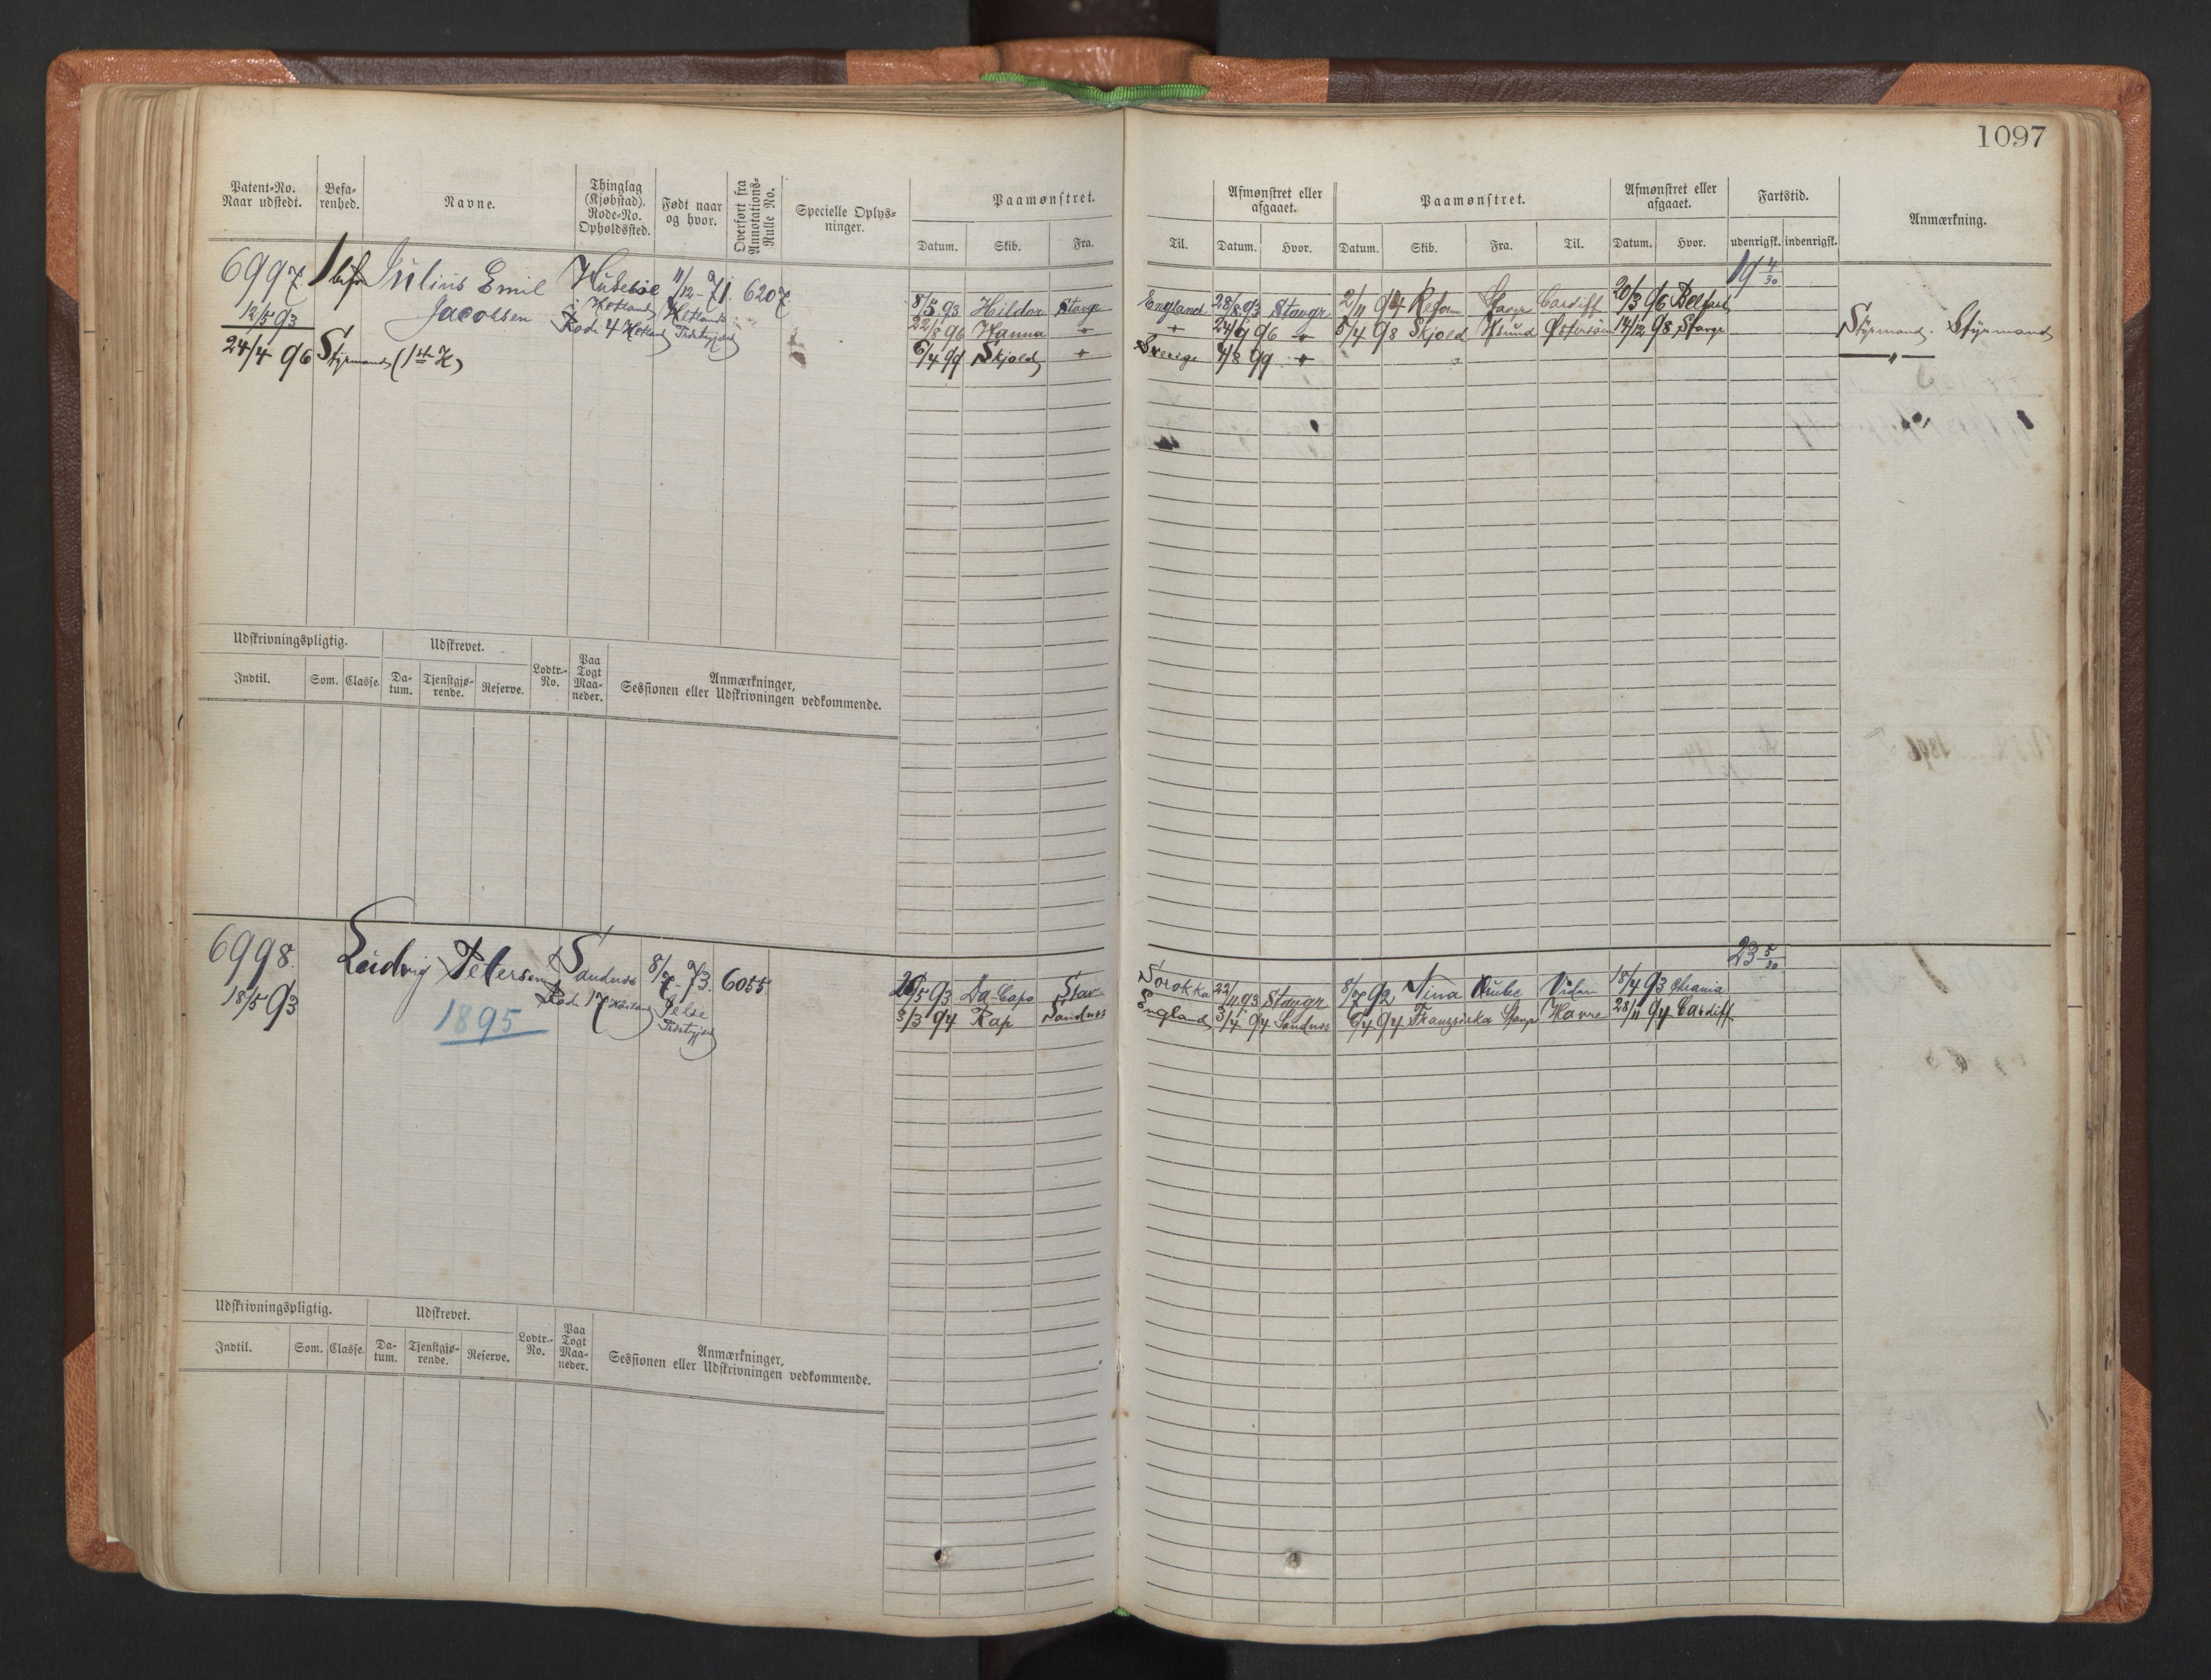 1097
Patent-No. Naar udstedt. Befa-renhed. Navne. Thinglag (Kjøbstad). Rode-No. Opholdssted. Født naar og hvor. Overført fra Annotations-Rulle No. Specielle Oplys-ninger. Paamønstret. Afmønstret eller afgaaet. Paamønstret. Afmønstret eller afgaaet. Fartstid. Anmærkning.
Datum. Skib. Fra. Til. Datum. Hvor. Datum. Skib. Fra. Til. Datum. Hvor. udenrigsk. indenrigsk.
6997 Julius Emil Husebøe 11/12-71. 6207 19 4/30
12/5 93 Jacobsen Hetland Hetland
Rode 4 Hetland
8/5 93 Hildor Stavgr England 28/8 93 Stavgr 2/11 94 Reform Stavgr Cardiff 20/3 96 Belfast
22/8 96 Hanna " " 24/9 96 " 5/4 98 Skjold Østersøen 14/12 98 Stavgr Styrmand. Styrmand
24/4 96 Styrmand (1ste K) 6/4 99 Skjold " Sverige 4/8 99 " "
Udskrivningspligtig. Udskrevet. Lodtr.-No. Paa Togt Maa-neder. Anmærkninger, Sessionen eller Udskrivningen vedkommende.
Indtil. Som. Classe. Da-tum. Tjenstgjø-rende. Reserve.
6998 Ludvig Petersen Sandnes 8/7-73. 6055 23 5/30
18/5 93 Rode 17 Jelse
1895
20/5 93 Da Capo Stav Sorokka 22/11 93 Stavgr 8/7 92 Nina 18/4 93 Chrania
3/3 94 Rap Sandnes England 3/4 94 Sandnes 6/4 94 Franziska Stavgr Havre 28/11 94 Cardiff
Udskrivningspligtig. Udskrevet. Lodtr.-No. Paa Togt Maa-neder. Anmærkninger, Sessionen eller Udskrivningen vedkommende.
Indtil. Som. Classe. Da-tum. Tjenstgjø-rende. Reserve.